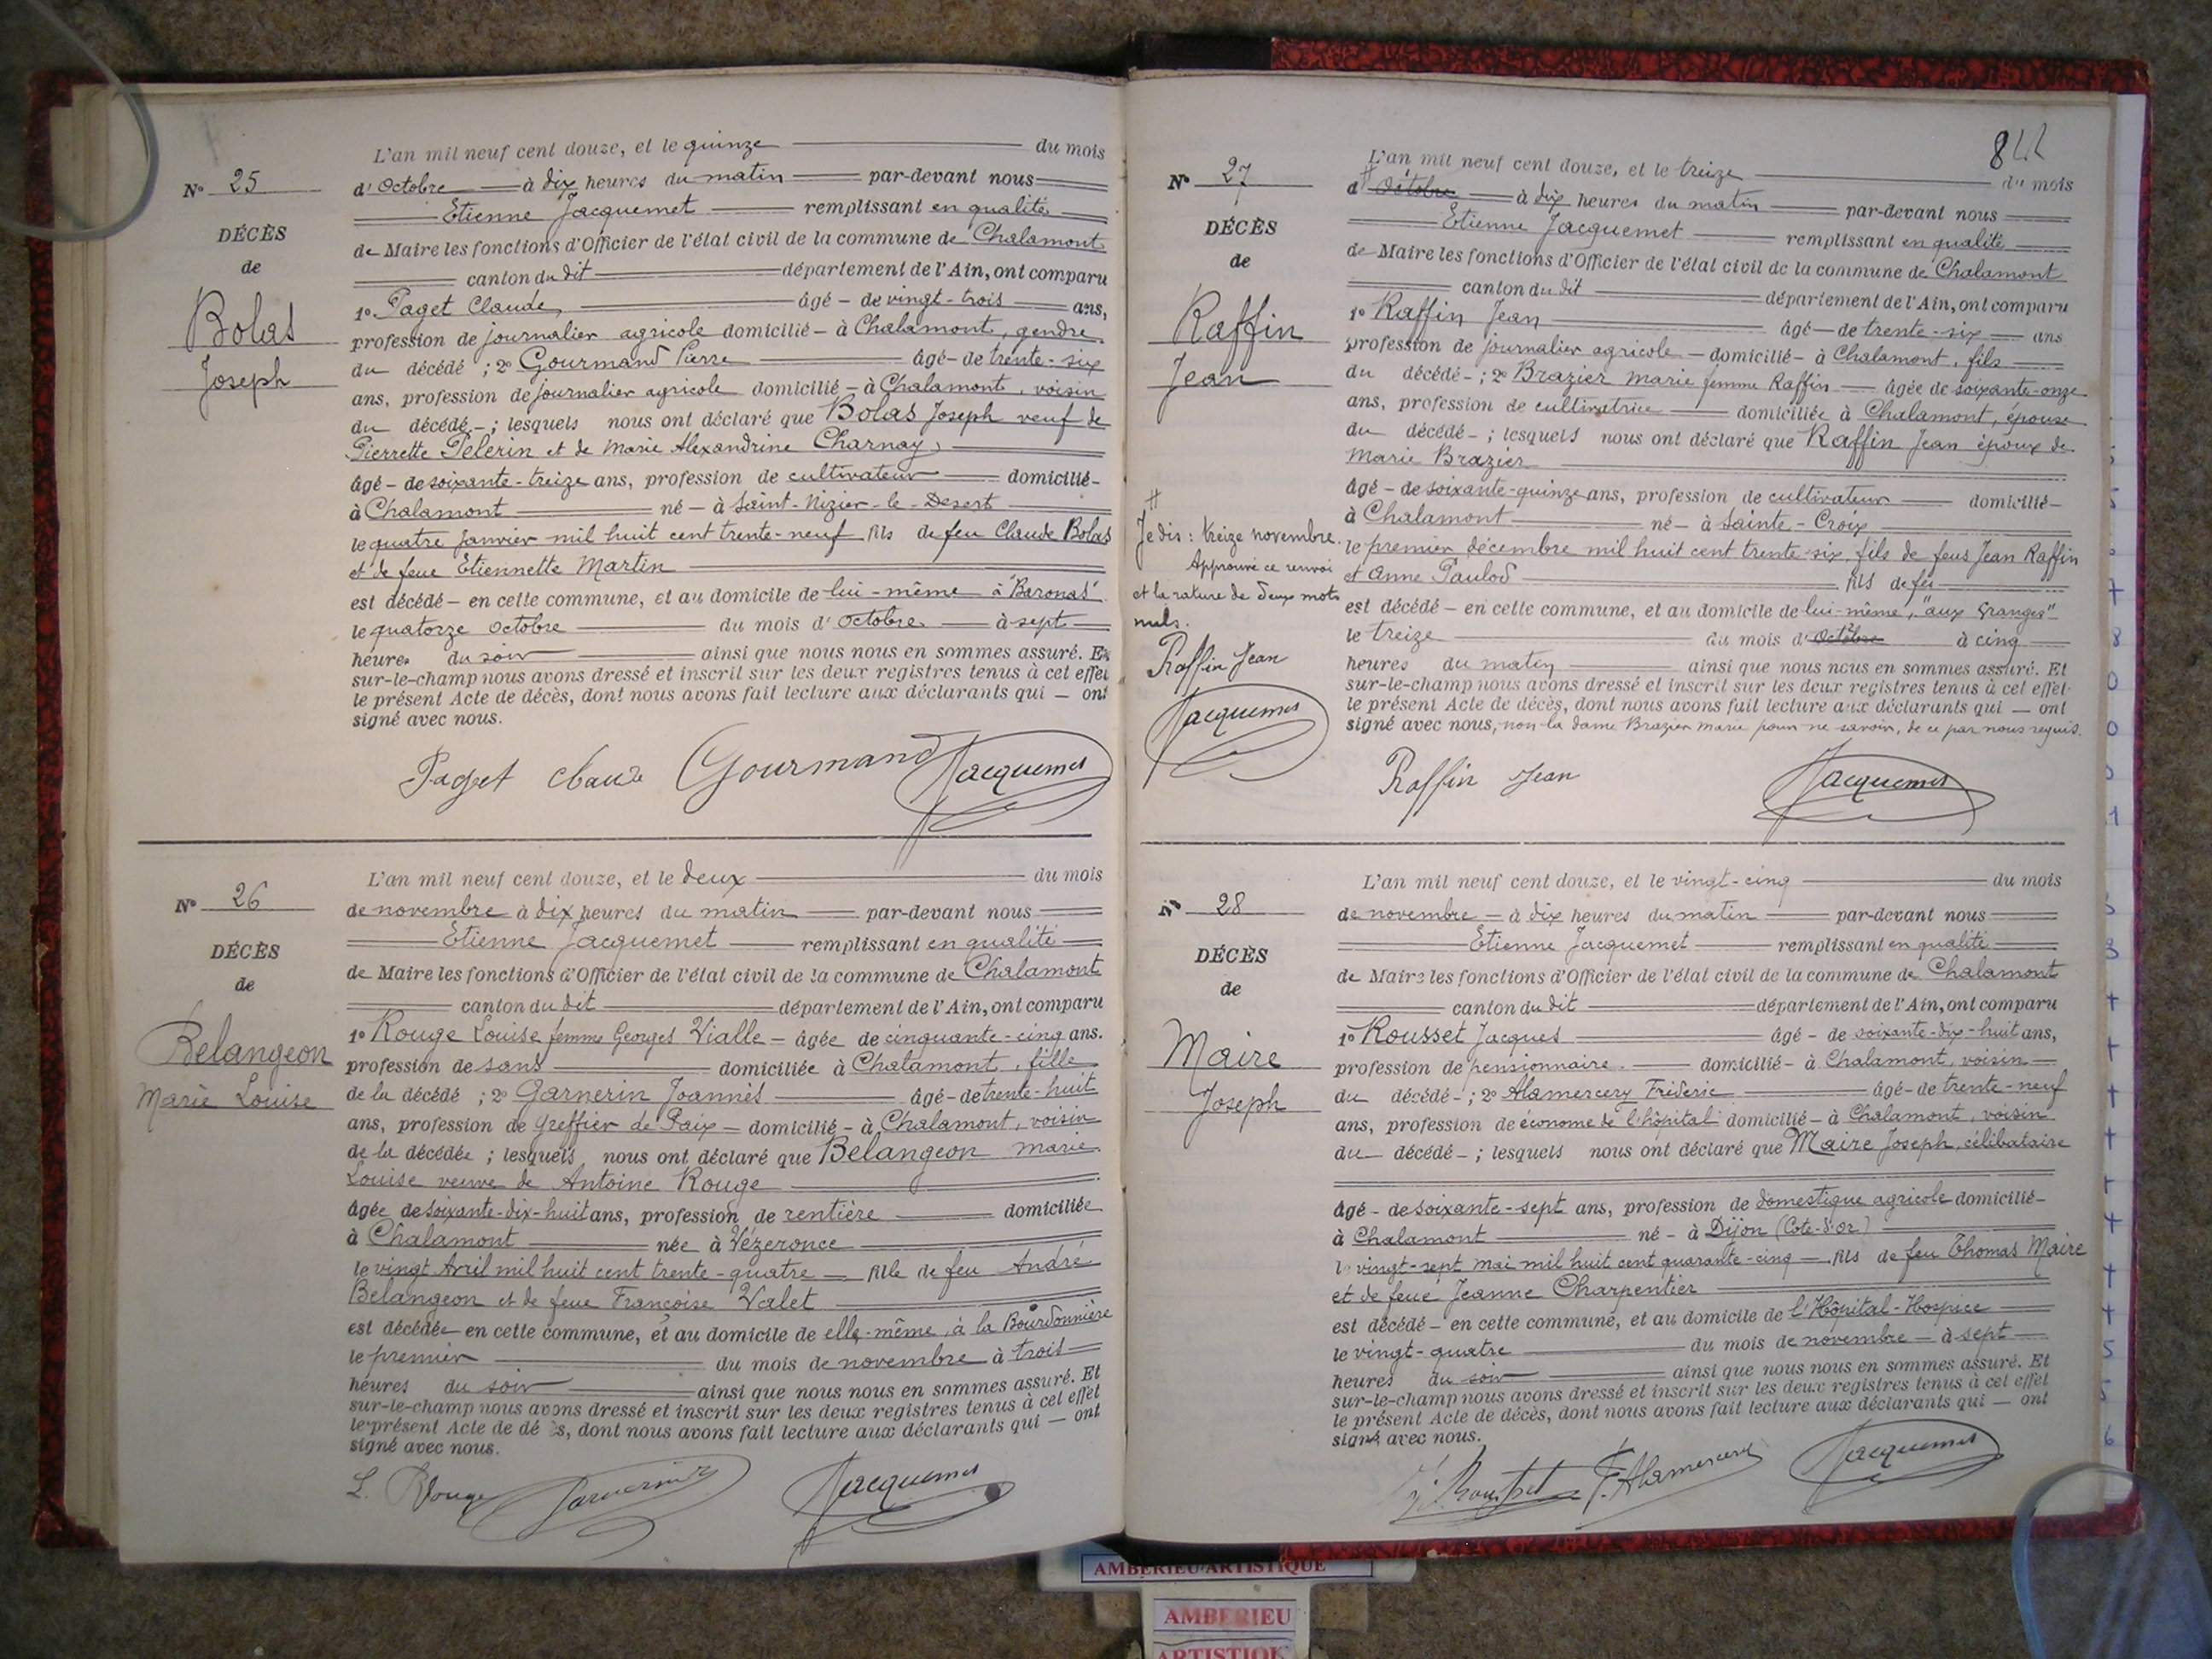 L'an mil neuf cent douze, et le quinze du mois
N° 25
d'Octobre à dix heures du matin par-devant nous
Etienne Jacquemet remplissant en qualité
DÉCÈS
de Maire les fonctions d'Officier de l'état civil de la commune de Chalamont
de
canton du dit département de l'Ain, ont comparu
1° Paget Claude, âgé - de vingt-trois ans,
Bolas
profession de journalier agricole domicilié - à Chalamont, gendre
du décédé ; 2° Gourmand Pierre âgé - de trente-six
Joseph
ans, profession de journalier agricole domicilié - à Chalamont, voisin
du décédé - ; lesquels nous ont déclaré que Bolas Joseph veuf de
Pierrette Pélerin et de Marie Alexandrine Charnay,
âgé - de soixante-treize ans, profession de cultivateur domicilié -
à Chalamont né - à Saint-Nizier-le-Desert
le quatre Janvier mil huit cent trente-neuf fils de feu Claude Bolas
et de feue Etiennette Martin
est décédé - en cette commune, et au domicile de lui-même à "Baronas"
le quatorze octobre du mois d'Octobre à sept
heures du soir ainsi que nous nous en sommes assuré. Et
sur-le-champ nous avons dressé et inscrit sur les deux registres tenus à cet effet
le présent Acte de décès, dont nous avons fait lecture aux déclarants qui — ont
signé avec nous.
Paget Claude Gourmand Jacquemet
L'an mil neuf cent douze, et le deux du mois
N° 26
de novembre à dix heures du matin par-devant nous
Etienne Jacquemet remplissant en qualité
DÉCÈS
de Maire les fonctions d'Officier de l'état civil de la commune de Chalamont
de
canton du dit département de l'Ain, ont comparu
1° Rouge Louise femme Georges Vialle - âgée de cinquante-cinq ans.
Belangeon
profession de sans domiciliée à Chalamont, fille
Marie Louise
de la décédé ; 2° Garnerin Joannès âgé - de trente-huit
ans, profession de Greffier de Paix - domicilié - à Chalamont, voisin
de la décédée ; lesquels nous ont déclaré que Belangeon Marie
Louise veuve de Antoine Rouge
âgée de soixante-dix-huit ans, profession de rentière domiciliée
à Chalamont née à Vézeronce
le vingt Avril mil huit cent trente-quatre fille de feu André
Belangeon et de feue Françoise Valet
est décédée en cette commune, et au domicile de elle-même, à la Bourdonnière
le premier du mois de novembre à trois
heures du soir ainsi que nous nous en sommes assuré. Et
sur-le-champ nous avons dressé et inscrit sur les deux registres tenus à cet effet
le présent Acte de dé ès, dont nous avons fait lecture aux déclarants qui — ont
signé avec nous.
L. Rouge Garnerin Jacquemet
844
L'an mil neuf cent douze, et le treize du mois
N° 27
# d'Octobre à dix heures du matin par-devant nous
Etienne Jacquemet remplissant en qualité
DÉCÈS
de Maire les fonctions d'Officier de l'état civil de la commune de Chalamont
de
canton du dit département de l'Ain, ont comparu
1° Raffin Jean âgé - de trente-six ans
Raffin
profession de journalier agricole - domicilié - à Chalamont, fils
Jean
du décédé - ; 2° Brazier Marie femme Raffin âgée de soixante-onze
ans, profession de cultivatrice domiciliée à Chalamont, épouse
du décédé - ; lesquels nous ont déclaré que Raffin Jean époux de
Marie Brazier
âgé - de soixante-quinze ans, profession de cultivateur domicilié -
à Chalamont né - à Sainte-Croix
le premier décembre mil huit cent trente-six, fils de feus Jean Raffin
et Anne Paulod fils de feu
est décédé - en cette commune, et au domicile de lui-même, "aux Granges"
le treize du mois d'Octobre à cinq
heures du matin ainsi que nous nous en sommes assuré. Et
sur-le-champ nous avons dressé et inscrit sur les deux registres tenus à cet effet
le présent Acte de décès, dont nous avons fait lecture aux déclarants qui — ont
signé avec nous, non la dame Brazier Marie pour ne savoir, de ce par nous requis.
#
Je dis : treize novembre.
Approuvé ce renvoi
et la rature de deux mots
nuls.
Raffin Jean
Jacquemet
Raffin Jean Jacquemet
L'an mil neuf cent douze, et le vingt-cinq du mois
N° 28
de novembre - à dix heures du matin par-devant nous
Etienne Jacquemet remplissant en qualité
DÉCÈS
de Maire les fonctions d'Officier de l'état civil de la commune de Chalamont
de
canton du dit département de l'Ain, ont comparu
1° Rousset Jacques âgé - de soixante-dix-huit ans,
Maire
profession de pensionnaire domicilié - à Chalamont, voisin
Joseph
du décédé - ; 2° Alamercery Fréderic âgé - de trente-neuf
ans, profession de économe de l'hôpital domicilié - à Chalamont, voisin
du décédé - ; lesquels nous ont déclaré que Maire Joseph, célibataire
âgé - de soixante-sept ans, profession de domestique agricole domicilié -
à Chalamont né - à Dijon (Cote-d'or)
le vingt-sept mai mil huit cent quarante-cinq fils de feu Thomas Maire
et de feue Jeanne Charpentier
est décédé - en cette commune, et au domicile de l'Hôpital-Hospice
le vingt-quatre du mois de novembre - à sept
heures du soir ainsi que nous nous en sommes assuré. Et
sur-le-champ nous avons dressé et inscrit sur les deux registres tenus à cet effet
le présent Acte de décès, dont nous avons fait lecture aux déclarants qui — ont
signé avec nous.
J. Rousset F. Alamercery Jacquemet
AMBERIEU ARTISTIQUE
AMBERIEU
ARTISTIQUE